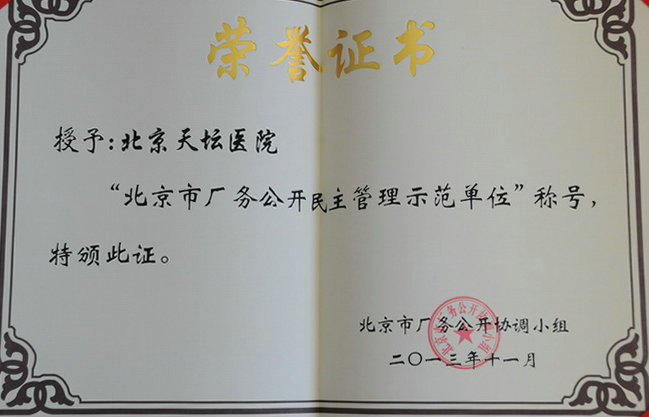 荣誉证书
授予:北京天坛医院
“北京市厂务公开民主管理示范单位”称号，
特颁此证。
北京市厂务公开协调小组
二〇一三年十一月
北京市厂务公开协调小组